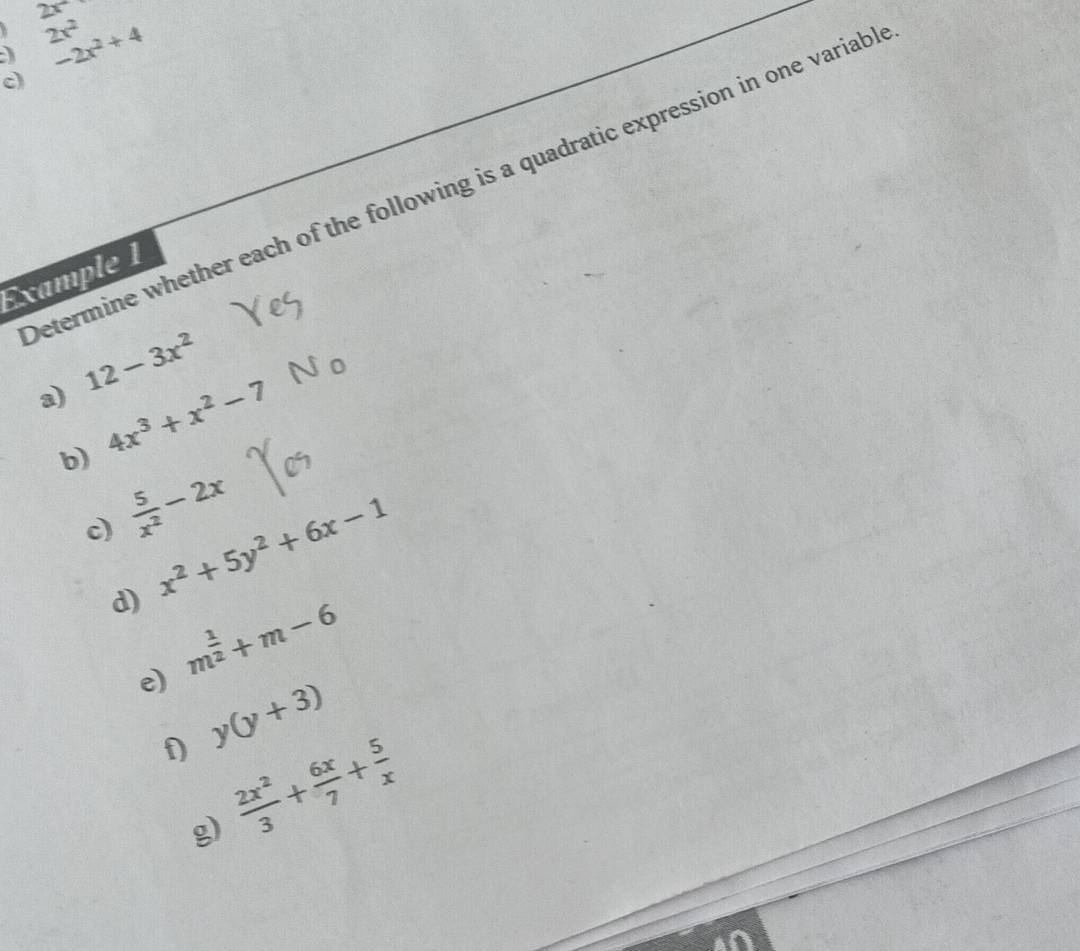 2x²
c) -2x² + 4
Example 1
Determine whether each of the following is a quadratic expression in one variable.
a) 12 − 3x² Yes
b) 4x³ + x² − 7 No
c) 5/x² − 2x Yes
d) x² + 5y² + 6x − 1
e) m^(1/2) + m − 6
f) y(y + 3)
g) 2x²/3 + 6x/7 + 5/x